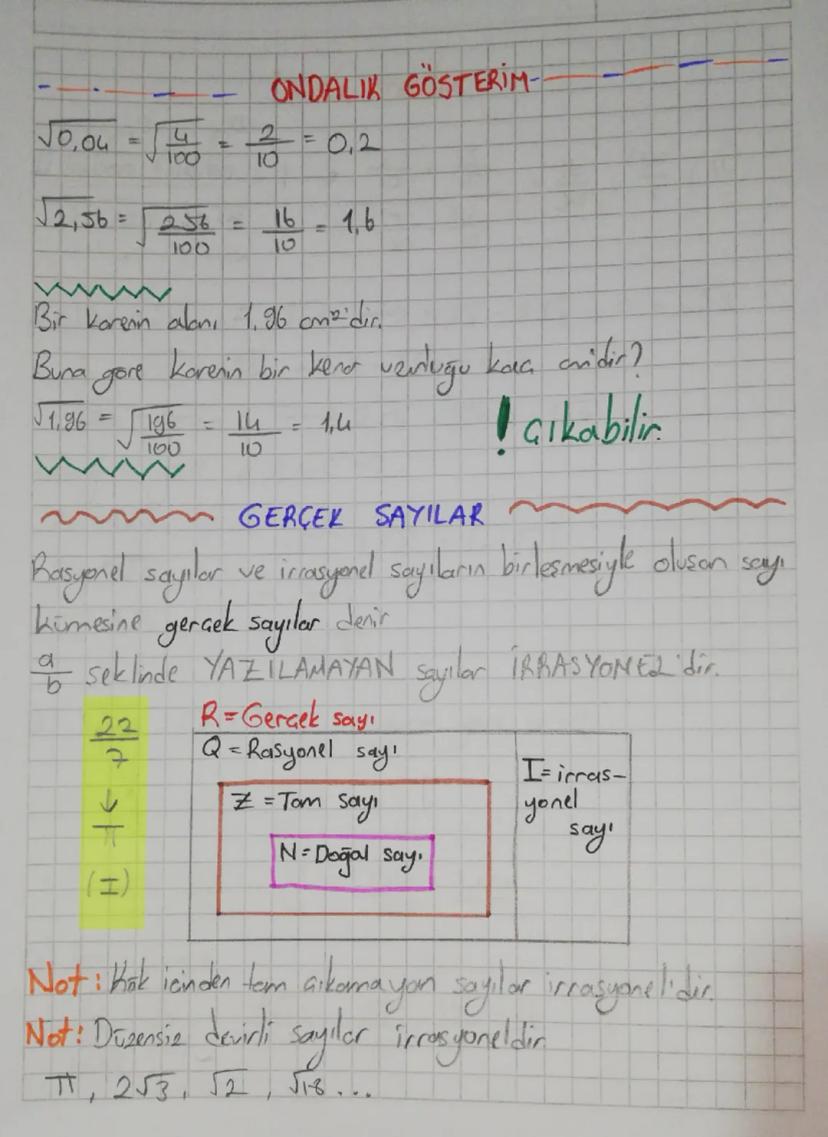 ONDALIK GÖSTERİM
√0,04 = √4/100 = 2/10 = 0,2
√2,56 = √256/100 = 16/10 = 1,6
Bir karenin alanı 1,96 cm²'dir.
Buna göre karenin bir kenar uzunluğu kaç cm'dir?
√1,96 = √196/100 = 14/10 = 1,4
! çıkabilir.
GERÇEK SAYILAR
Rasyonel sayılar ve irrasyonel sayıların birleşmesiyle oluşan sayı
kümesine gerçek sayılar denir
a/b şeklinde YAZILAMAYAN sayılar İRRASYONEL'dir.
22/7
↓
π
(I)
R = Gerçek sayı
Q = Rasyonel sayı
Z = Tam sayı
N = Doğal sayı
I = irras-
yonel
sayı
Not: Kök içinden tam çıkamayan sayılar irrasyonel'dir.
Not: Düzensiz devirli sayılar irrasyoneldir
π, 2√3, √2, √18 ...